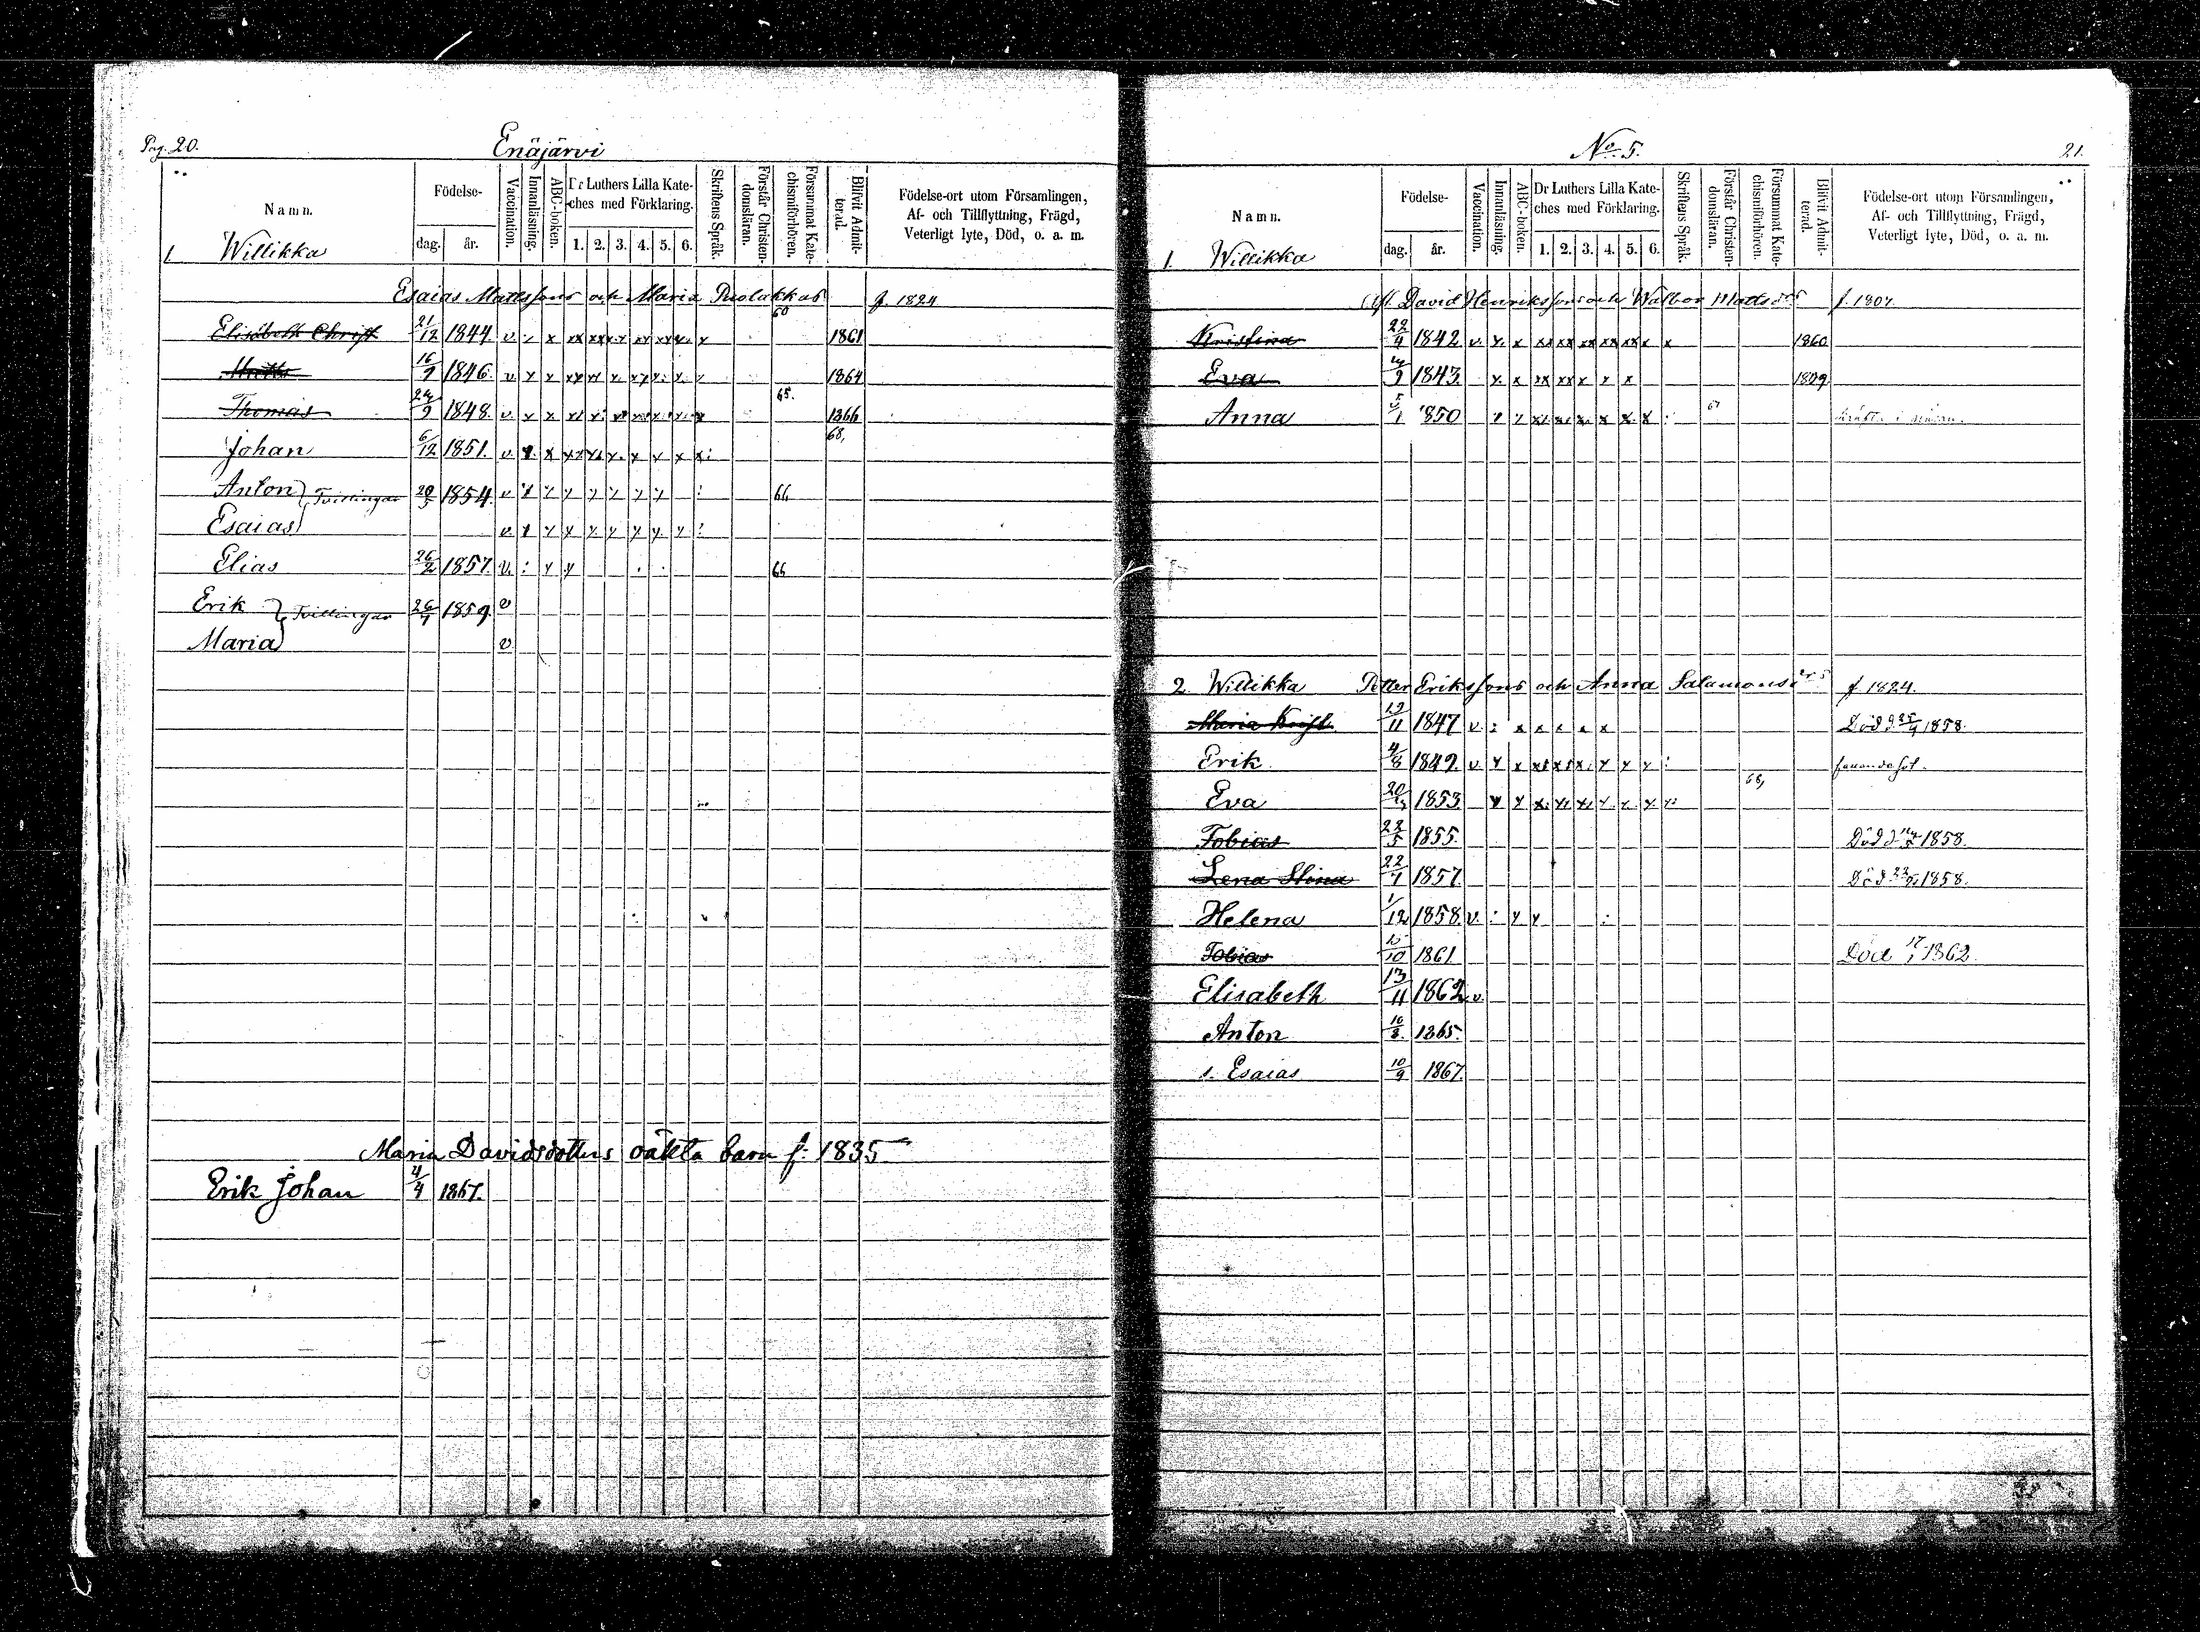 Pag. 20. Enäjärvi
Namn. Födelse- dag. år. Vaccination. Innanläsning. ABC-boken. Dr Luthers Lilla Kateches med Förklaring. 1. 2. 3. 4. 5. 6. Skriftens Språk. Förstår Christendomsläran. Försummat Katechismiförhören. Blifvit Admitterad. Födelse-ort utom Församlingen, Af- och Tillflyttning, Frägd, Veterligt lyte, Död, o. a. m.
1. Willikka
Esaias Mattssons och Maria Puolakkas f. 1824
60
Elisabeth Christ 21/12 1844 v. 1861
16/9 1846. v 1864
65.
Thomas 1848. v. 1866
68,
Johan 6/12 1851. v.
Anton } Tvillingar 1854. v 66
Esaias v.
Elias 26/2 1857. v. 66
Erik } Tvillingar 1859. v
Maria v
Maria Davidsdotters oäkta barn f. 1835
Erik Johan 4/4 1867.
No. 5. 21.
Namn. Födelse- dag. år. Vaccination. Innanläsning. ABC-boken. Dr Luthers Lilla Kateches med Förklaring. 1. 2. 3. 4. 5. 6. Skriftens Språk. Förstår Christendomsläran. Försummat Katechismiförhören. Blifvit Admitterad. Födelse-ort utom Församlingen, Af- och Tillflyttning, Frägd, Veterligt lyte, Död, o. a. m.
1. Willikka
David Henrikssons och Walbor Mattsdrs f. 1807.
Kristina 1842 v. 1860
Eva 1843
Anna 5/1 1850 67
2. Willikka Petter Erikssons och Anna Salamonsdrs f. 1824.
Maria Krist. 19/11 1847 v. Död d 1858.
Erik 4/8 1849. v.
68,
Eva 1853
Tobias 22/5 1855. Död d 1858.
Lena Stina 1857. Död 1858.
Helena 1/12 1858. v.
Tobias 1861 Död 17/1 1862.
Elisabeth 13/11 1862 v.
Anton 10/8. 1865.
s. Esaias 10/9 1867.